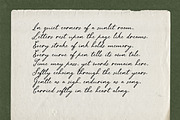 In quiet corners of a sunlit room,
Letters rest upon the page like dreams.
Every stroke of ink holds memory,
Every curve of pen tells its own tale.
Time may pass, yet words remain here,
Softly echoing through the silent years.
Gentle as a sigh, enduring as a song,
Carried softly in the heart along.